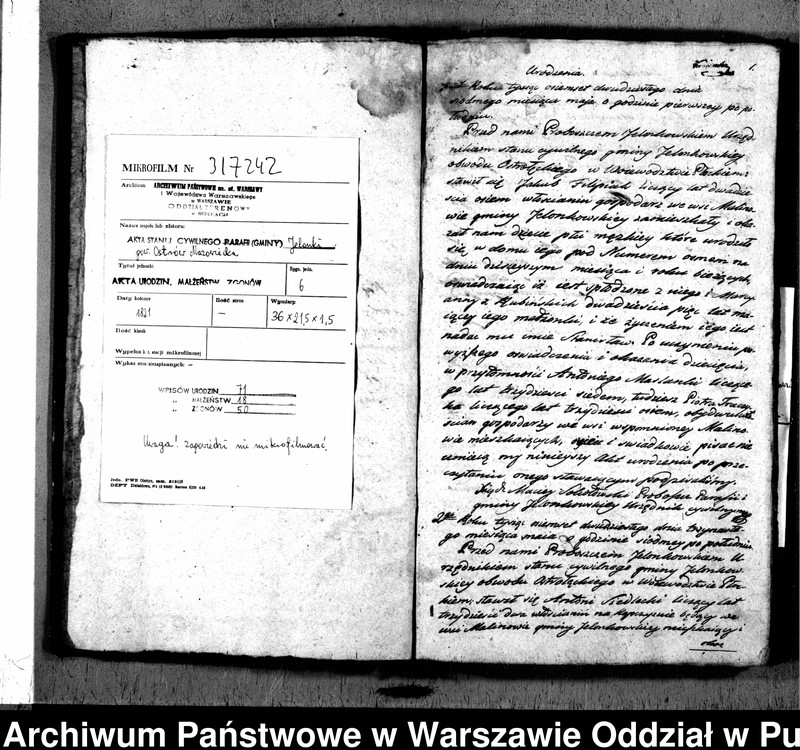 MIKROFILM Nr 317242
Archiwum ARCHIWUM PAŃSTWOWE m. st. WARSZAWY
i Województwa Warszawskiego
w WARSZAWIE
ODDZIAŁ TERENOWY
Nazwa zespołu lub zbioru:
AKTA STANU CYWILNEGO PARAFII (GMINY) Jelonki
pow. Ostrów Mazowiecka
Tytuł jednostki
AKTA URODZIN, MAŁŻEŃSTW, ZGONÓW
Sygn. jedn.
6
Daty końcowe
1821
Ilość stron
—
Wymiary
36 x 21,5 x 1,5
Ilość klatek
Wykaz stron niezapisanych: —
WPISÓW URODZIN 71
„ MAŁŻEŃSTW 18
„ ZGONÓW 50
Uwaga! zapowiedzi nie mikrofilmować.
Urodzenia.
1.
Roku tysiąc osiemset dwudziestego dnia
siodmego miesiąca maja o godzinie pierwszey po po-
łudniu.
Przed nami Proboszczem Jelonkowskiem Urzęd-
nikiem stanu cywilnego gminy Jelonkowskiey
obwodu Ostrołęckiego w Wojewodztwie Płockiem;
stawił się Jakub Filipiak liczący lat dwadzie-
ścia osiem włościanin gospodarz we wsi Malino-
wie gminy Jelonkowskiey zamieszkały i oka-
zał nam dziecie płci męzkiey które urodziło
się w domu iego pod Numerem osmem na
dniu dzisieyszym miesiąca i roku bieżących,
oswiadczaiąc iż iest spłodzone z niego i Mary-
anny z Rubinskich dwadzieścia pięc lat ma-
iącey iego małżonki, i że życzeniem iego iest
nadać mu imie Stanisław. Po uczynieniu po-
wyższego oswiadczenia i okazania dziecięcia,
w przytomności Antoniego Maslanki liczące-
go lat trzydzieści siedem, tudziesz Piotra
liczącego lat trzydzieści osiem, obydwu wło-
ścian gospodarzy we wsi wspomnioney Malino-
wie mieszkaiących, oyciec i swiadkowie pisać nie
umieią my ninieyszy Akt urodzenia po prze-
czytaniu onego stawaiącym podpisalismy.
Xiądz Maciey Sokołowski Proboszcz Parafii i
gminy Jelonkowskiey Urzędnik cywilny
2. Roku tysiąc osiemset dwudziestego dnia trzynaste-
go miesiąca maia o godzinie siodmey po południu
Przed nami Proboszczem Jelonkowskiem U-
rzędnikiem stanu cywilnego gminy Jelonkow-
skiey obwodu Ostrołęckiego w Wojewodztwie Płoc-
kiem; stawił się Antoni Siedlecki liczący lat
trzydzieści dwa włościanin na komornie będący we
wsi Malinowie gminy Jelonkowskiey mieszkaiący i
okaz
Archiwum Państwowe w Warszawie Oddział w Pu